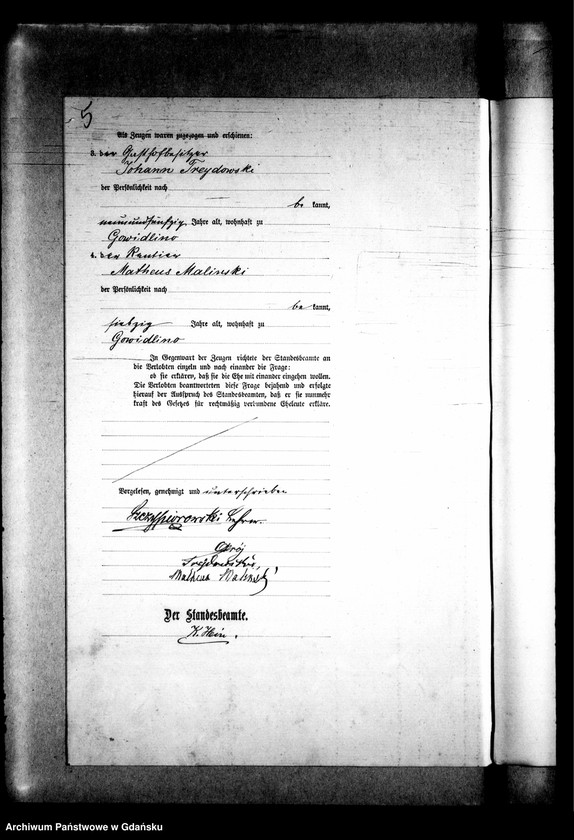 5
Als Zeugen waren zugezogen und erschienen:
3. der Gasthofbesitzer
Johann Treydowski
der Persönlichkeit nach
be kannt,
neunundfünfzig Jahre alt, wohnhaft zu
Gowidlino
4. der Rentier
Matheus Malinski
der Persönlichkeit nach
be kannt,
siebzig Jahre alt, wohnhaft zu
Gowidlino
In Gegenwart der Zeugen richtete der Standesbeamte an
die Verlobten einzeln und nach einander die Frage:
ob sie erklären, daß sie die Ehe mit einander eingehen wollen.
Die Verlobten beantworteten diese Frage bejahend und erfolgte
hierauf der Ausspruch des Standesbeamten, daß er sie nunmehr
kraft des Gesetzes für rechtmäßig verbundene Eheleute erkläre.
Vorgelesen, genehmigt und unterschrieben
Lehrer.
Matheus Malinski
Der Standesbeamte.
K. Hein.
Archiwum Państwowe w Gdańsku